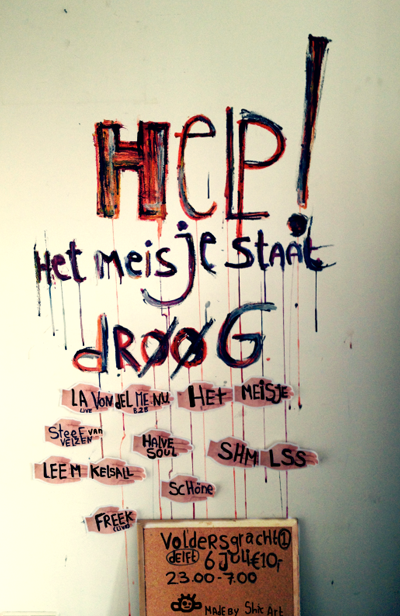 HeLP!
Het meisje staat
dRøøG
LA VONdeL ME NU
LIVE
8.28
Het MEISJE
SteeF van
VELZEN
HALVE
SOUL
SHM LSS
LEE M KELSALL
SCHöne
FREEK
(LIVE)
Voldersgracht 1
delft 6 JULI €10,-
23.00-7.00
MADE BY Shit Art